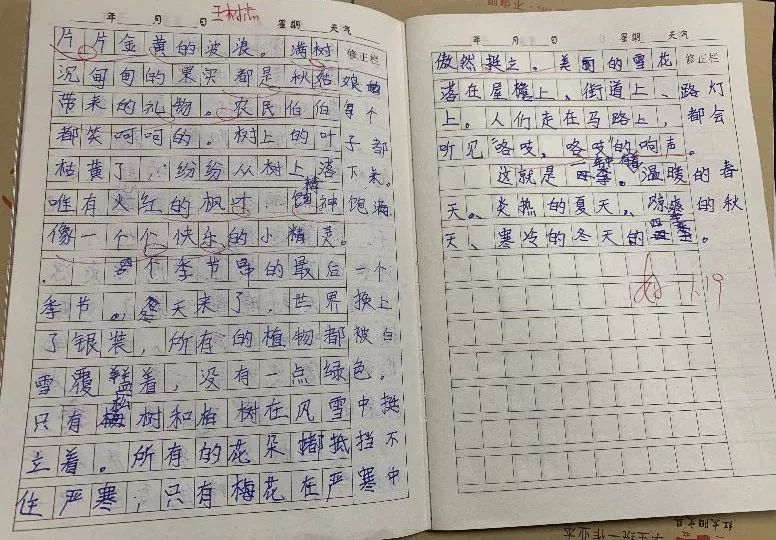 王树杰
年 月 日 星期 天气
片片金黄的波浪。满树 修正栏
沉甸甸的果实都是秋姑娘给
带来的礼物。农民伯伯每个
都笑呵呵的。树上的叶子都
枯黄了，纷纷从树上落下来。
唯有火红的枫叶精神饱满
像一个个快乐的小精灵。
四个季节里的最后一个
季节。冬天来了，世界换上
了银装，所有的植物都被白
雪覆盖着，没有一点绿色。
只有松树和梅树在风雪中挺
立着。所有的花朵都抵挡不
住严寒，只有梅花在严寒中
年 月 日 星期 天气
傲然挺立。美丽的雪花 修正栏
落在屋檐上、街道上、路灯
上。人们走在马路上，都会
听见"咯吱，咯吱"的响声。
这就是四季。温暖的春
天、炎热的夏天、凉爽的秋
天、寒冷的冬天的四季。
1.19
红太阳文具
学生统一作业本